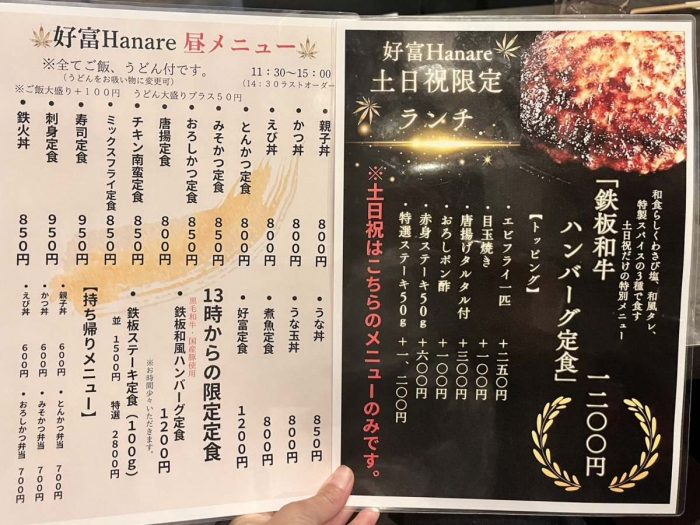 好富Hanare 昼メニュー
※全てご飯、うどん付です。
（うどんをお吸い物に変更可）
11：30～15：00
（14：30ラストオーダー
※ご飯大盛り＋１００円　うどん大盛りプラス５０円
・親子丼　８００円
・かつ丼　８００円
・えび丼　８００円
・とんかつ定食　８５０円
・みそかつ定食　８５０円
・おろしかつ定食　８５０円
・唐揚定食　８００円
・チキン南蛮定食　８５０円
・ミックスフライ定食　８５０円
・寿司定食　９５０円
・刺身定食　９５０円
・鉄火丼　８５０円
・うな丼　８５０円
・うな玉丼　８００円
・煮魚定食　８００円
・好富定食　１２００円
13時からの限定定食
黒毛和牛・国産豚使用
・鉄板和風ハンバーグ定食　１２００円
※お時間少々いただきます。
・鉄板ステーキ定食（１００g）
並　１５００円　特選　２８００円
【持ち帰りメニュー】
・親子丼　６００円
・かつ丼　６００円
・えび丼　６００円
・とんかつ弁当　７００円
・みそかつ弁当　７００円
・おろしかつ弁当　７００円
好富Hanare
土日祝限定
ランチ
和食らしくわさび塩、和風タレ、
特製スパイスの3種で食す
土日祝だけの特別メニュー
「鉄板和牛
ハンバーグ定食」
一二〇〇円
【トッピング】
・エビフライ一匹　＋二五〇円
・目玉焼き　＋一〇〇円
・唐揚げタルタル付　＋三〇〇円
・おろしポン酢　＋一〇〇円
・赤身ステーキ50g　＋六〇〇円
・特選ステーキ50g　＋一、二〇〇円
※土日祝はこちらのメニューのみです。